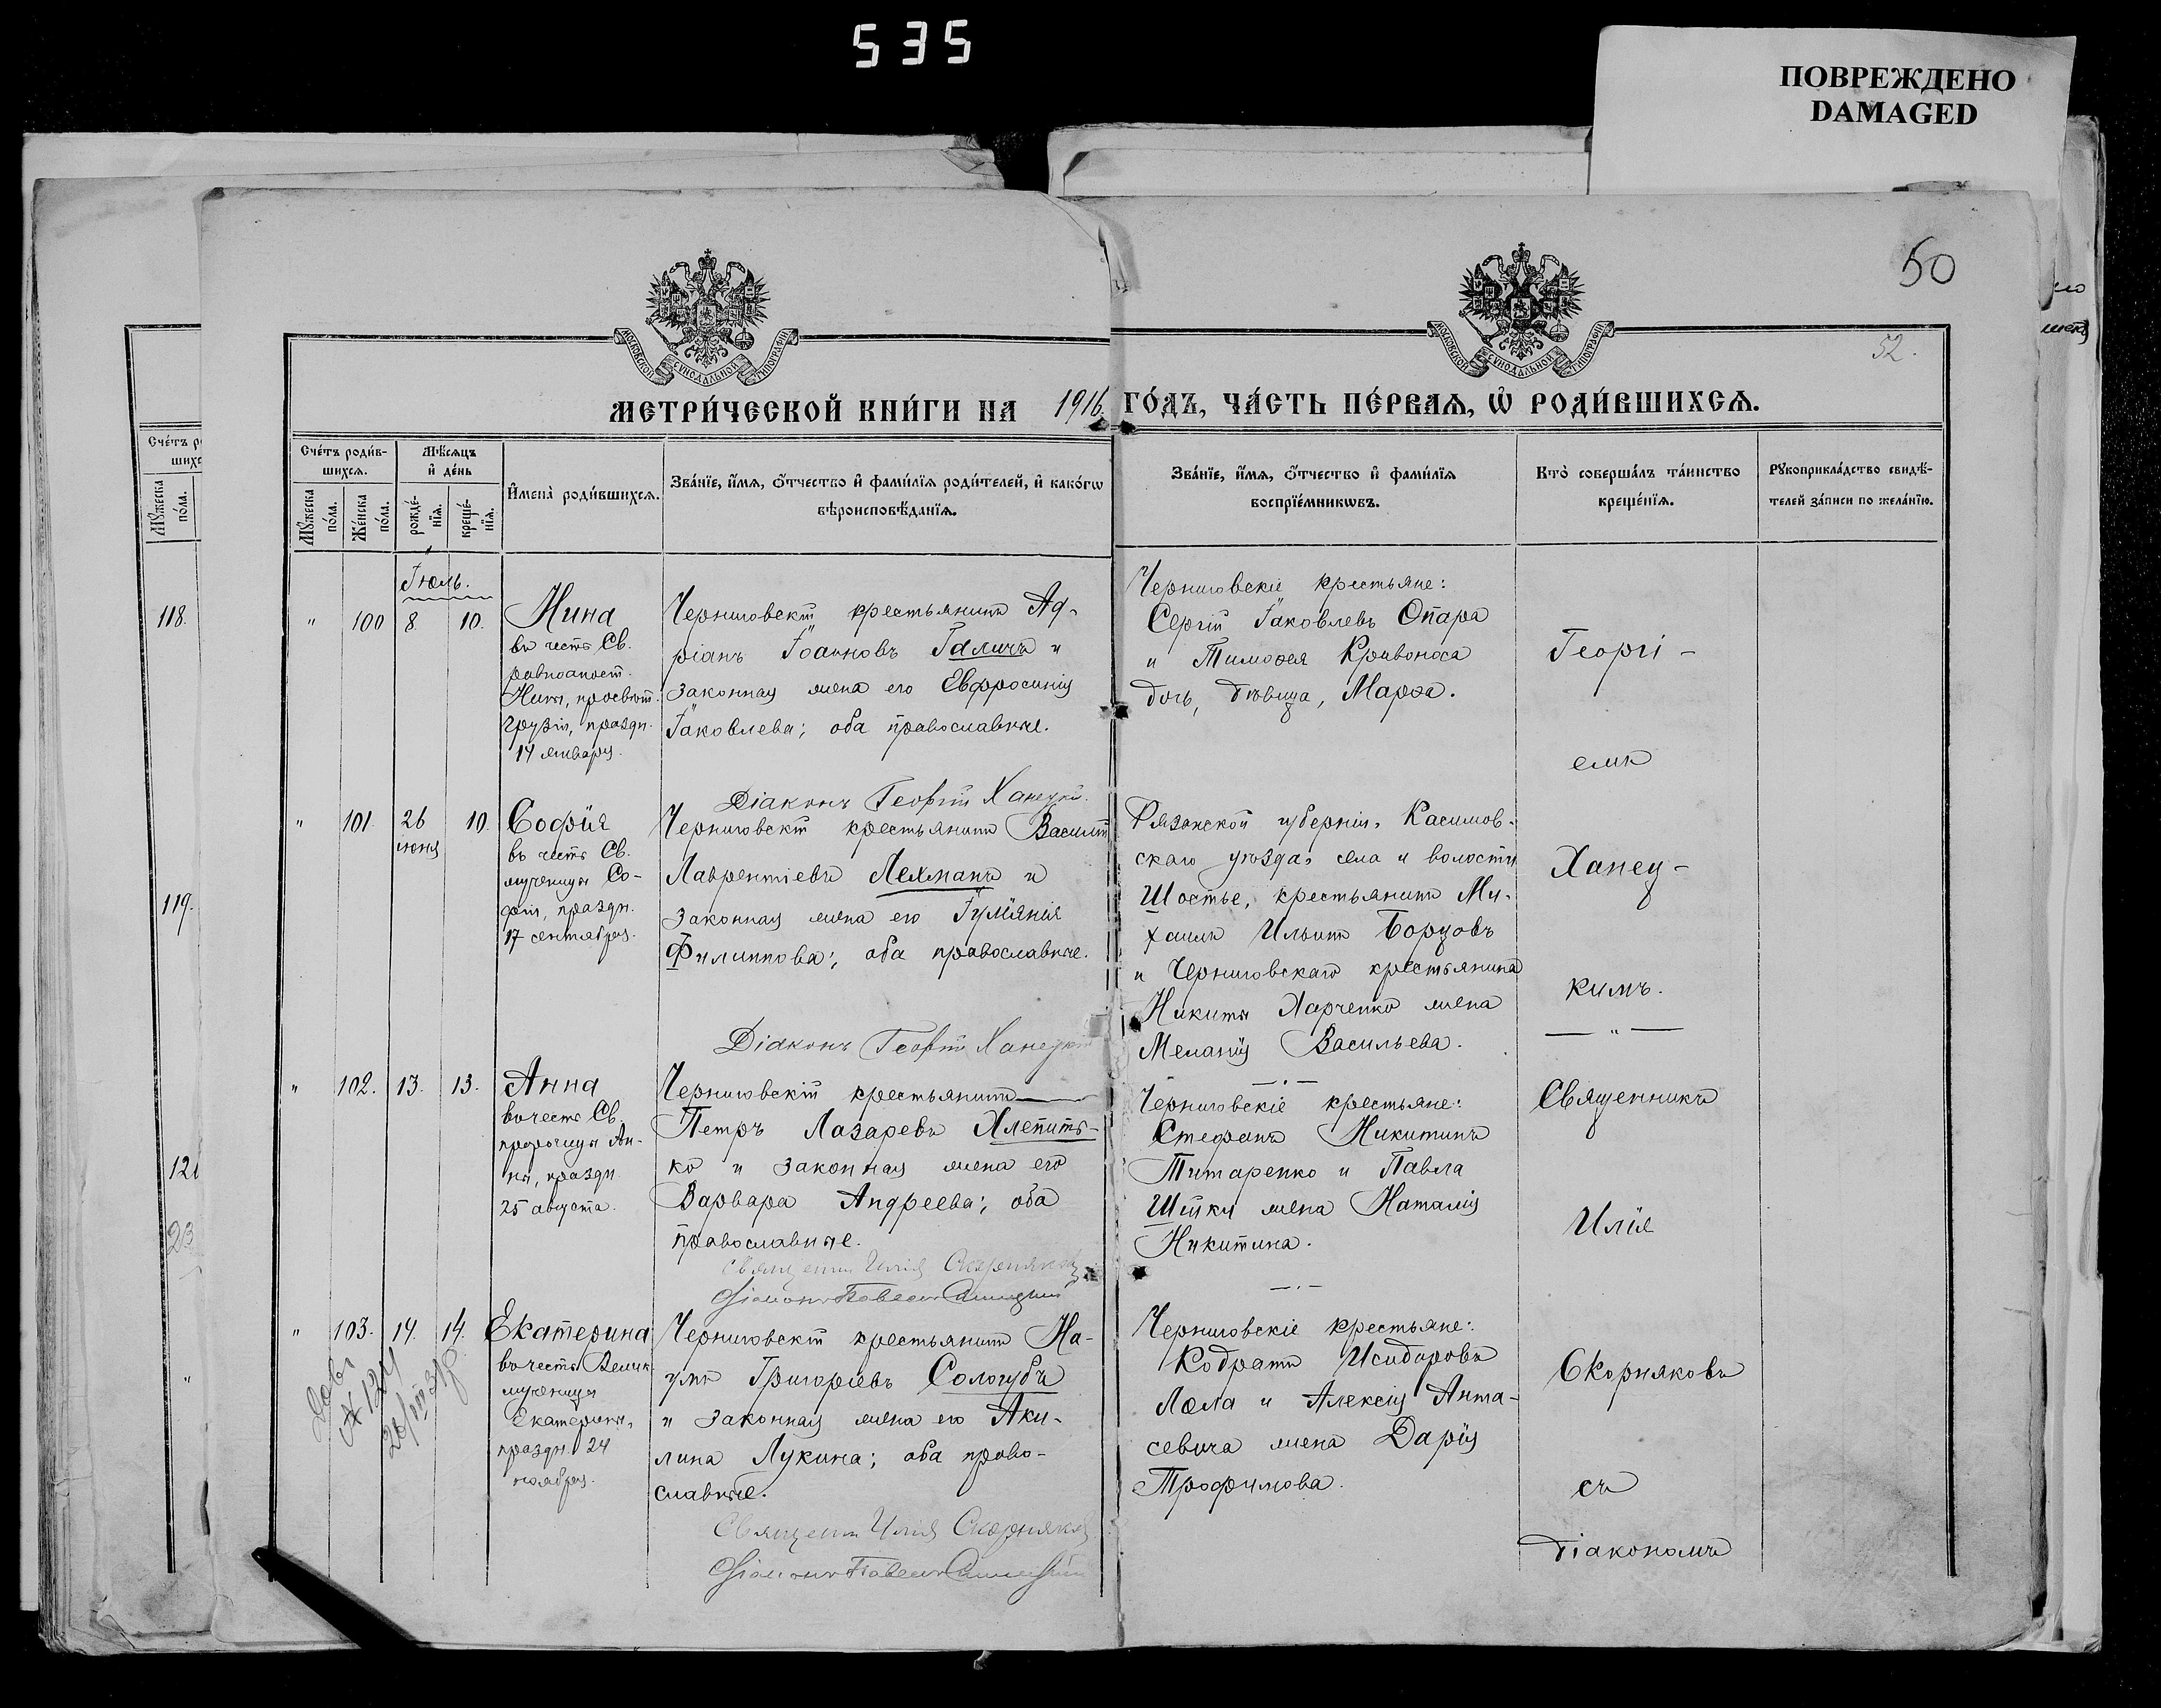 535
ПОВРЕЖДЕНО
DAMAGED
50
52.
МОСКОВСКОЙ СѴНОДАЛЬНОЙ ТИПОГРАФІИ
МОСКОВСКОЙ СѴНОДАЛЬНОЙ ТИПОГРАФІИ
МЕТРИ́ЧЕСКОЙ КНИ́ГИ НА 1916 ГО́ДЪ, ЧА́СТЬ ПЕ́РВАѦ, Ѡ҆ РОДИ́ВШИХСѦ.
Сче́тъ роди́в-
шихсѧ.
Мѹ́жеска по́ла.
Же́нска по́ла.
Мѣ́сѧцъ
и҆ де́нь
рожде́-
нїѧ.
креще́-
нїѧ.
И҆мена̀ роди́вшихсѧ.
Зва́нїе, и҆́мѧ, ѻ҆́тчество и҆ фами́лїѧ роди́телей, и҆ како́гѡ
вѣроисповѣ́данїѧ.
Зва́нїе, и҆́мѧ, ѻ҆́тчество и҆ фами́лїѧ
воспрїе́мникѡвъ.
Кто̀ соверша́лъ та́инство
креще́нїѧ.
Рѹкоприкла́дство свидѣ́-
телей за́писи по жела́нїю.
118.
119.
121
23
Іюль.
" 100 8. 10.
Нина
въ честь Св.
равноапост.
Нины, просвѣт.
Грузіи, праздн.
14 января.
Черниговскій крестьянинъ Ад-
ріанъ Іоанновъ Галичъ и
законная жена его Евфросинія
Іаковлева; оба православные.
Діаконъ Георгій Ханецкій.
Черниговскіе крестьяне:
Сергій Іаковлевъ Опара
и Тимоѳея Кривоноса
дочь, дѣвица, Марѳа.
Георгі-
емъ
" 101. 26 июня 10.
Софія
въ честь Св.
мученицы Со-
фіи, праздн.
17 сентября.
Черниговскій крестьянинъ Василій
Лаврентіевъ Лехманъ и
законная жена его Іуліанія
Филиппова; оба православные.
Діаконъ Георгій Ханецкій
Рязанской губерніи, Касимов-
скаго уѣзда, села и волости
Шостье, крестьянинъ Ми-
хаилъ Ильинъ Борцовъ
и Черниговскаго крестьянина
Никиты Харченко жена
Меланія Васильева.
Ханец-
кимъ.
— " —
" 102. 13. 13.
Анна
въ честь Св.
пророчицы Ан-
ны, праздн.
25 августа.
Черниговскій крестьянинъ
Петръ Лазаревъ Хлепить-
ко и законная жена его
Варвара Андреева; оба
православные.
Священникъ Илія Скорняковъ
Діаконъ Павелъ
Черниговскіе крестьяне:
Стефанъ Никитинъ
Титаренко и Павла
Шийки жена Наталія
Никитина.
Священникъ
Илія
" 103. 14. 14.
Екатерина
въ честь Велик-
мученицы
Екатерины,
праздн. 24
ноября.
Черниговскій крестьянинъ На-
умъ Григоріевъ Сологубъ
и законная жена его Аки-
лина Лукина; оба право-
славные.
Священникъ Илія Скорняковъ
Діаконъ Павелъ
Черниговскіе крестьяне:
Кодратъ Исидоровъ
Лола и Алексія Анта-
севича жена Дарія
Трофимова.
Скорняковъ
съ
діакономъ